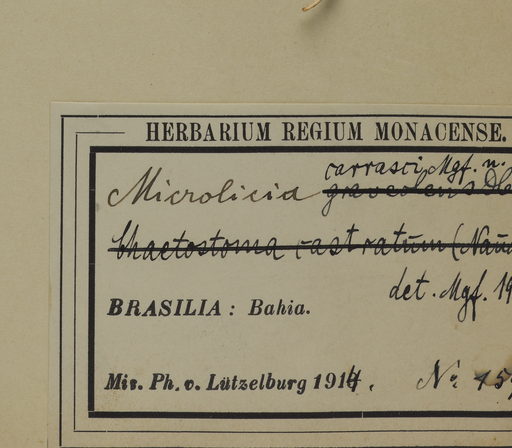 HERBARIUM REGIUM MONACENSE.
carrasci Mgf. n.
Microlicia graveolens
Chaetostoma castratum (Naud
det. Mgf. 19
BRASILIA : Bahia.
Mis. Ph. v. Lützelburg 1914. No. 15